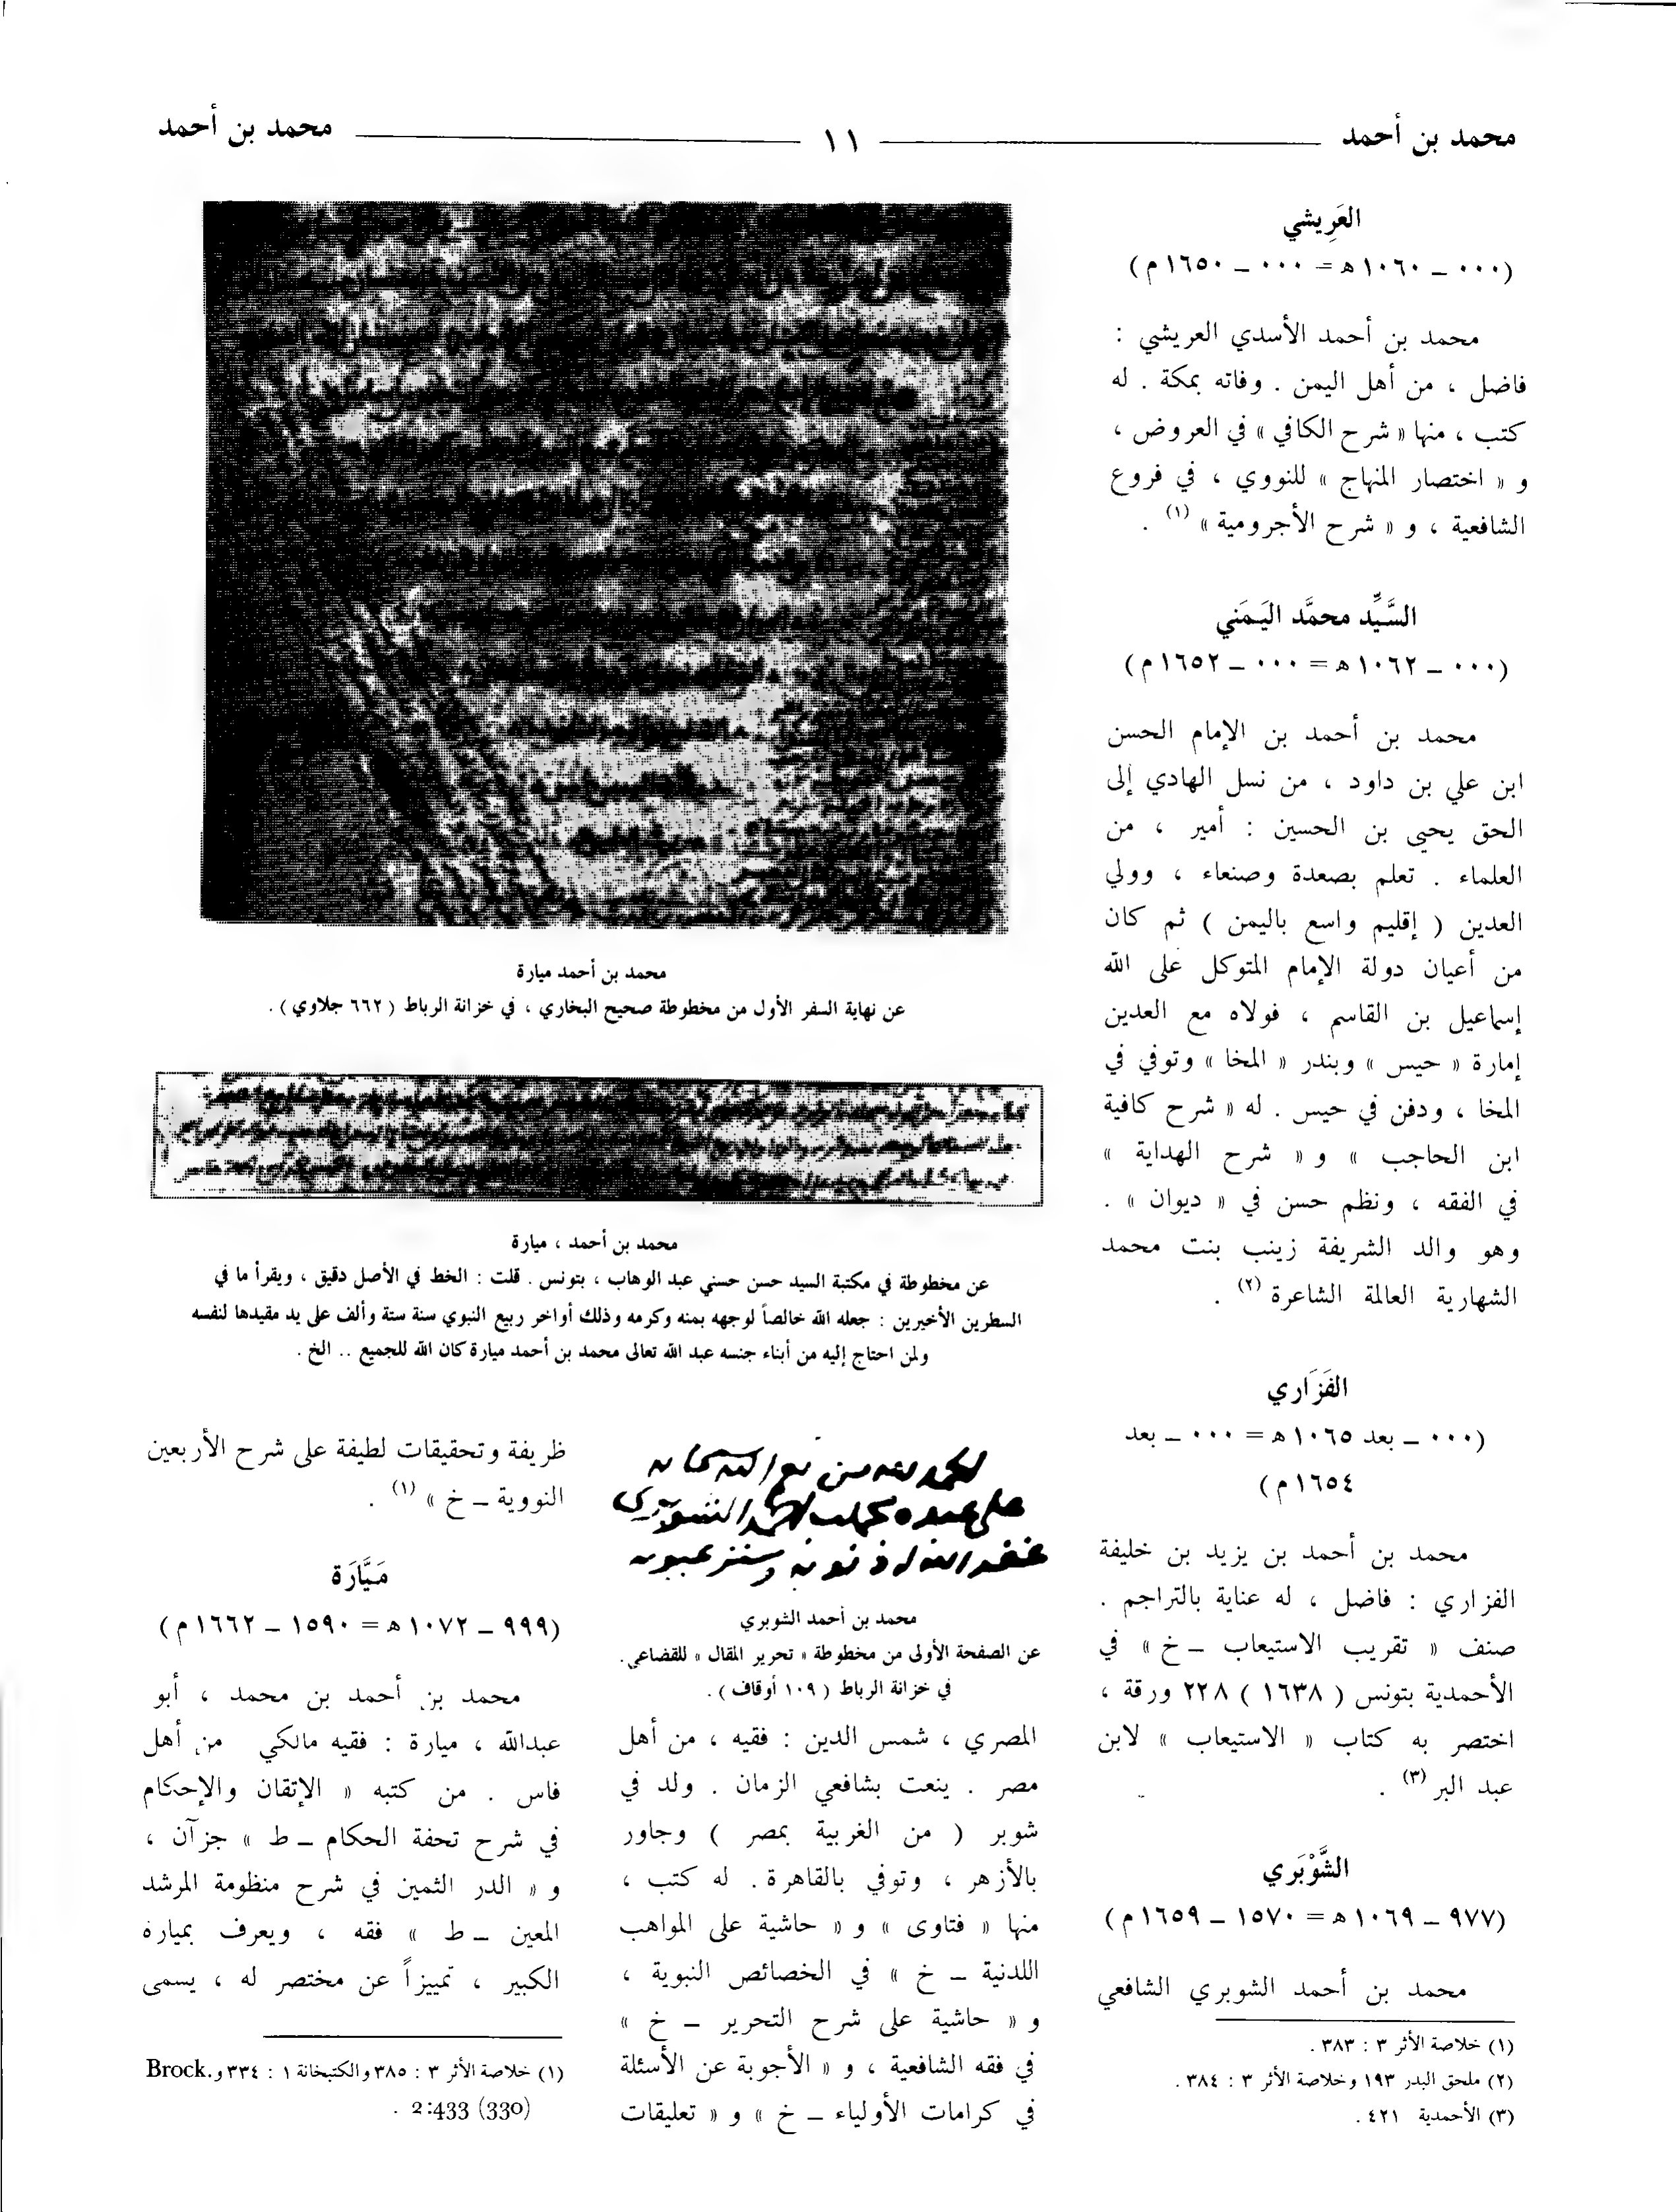 محمد بن أحمد ١١ محمد بن أحمد
العَرِيشي
(٠٠٠ ــ ١٠٦٠ هـ = ٠٠٠ ــ ١٦٥٠ م)
محمد بن أحمد الأسدي العريشي :
فاضل ، من أهل اليمن . وفاته بمكة . له
كتب ، منها « شرح الكافي » في العروض ،
و « اختصار المنهاج » للنووي ، في فروع
الشافعية ، و « شرح الأجرومية » (١) .
السَّيِّد محمَّد اليَمَني
(٠٠٠ ــ ١٠٦٢ هـ = ٠٠٠ ــ ١٦٥٢ م)
محمد بن أحمد بن الإمام الحسن
ابن علي بن داود ، من نسل الهادي إلى
الحق يحيى بن الحسين : أمير ، من
العلماء . تعلم بصعدة وصنعاء ، وولي
العدين ( إقليم واسع باليمن ) ثم كان
من أعيان دولة الإمام المتوكل على الله
إسماعيل بن القاسم ، فولاه مع العدين
إمارة « حيس » وبندر « المخا » وتوفي في
المخا ، ودفن في حيس . له « شرح كافية
ابن الحاجب » و « شرح الهداية »
في الفقه ، ونظم حسن في « ديوان » .
وهو والد الشريفة زينب بنت محمد
الشهارية العالمة الشاعرة (٢) .
الفَزَاري
(٠٠٠ ــ بعد ١٠٦٥ هـ = ٠٠٠ ــ بعد
١٦٥٤ م)
محمد بن أحمد بن يزيد بن خليفة
الفزاري : فاضل ، له عناية بالتراجم .
صنف « تقريب الاستيعاب ــ خ » في
الأحمدية بتونس ( ١٦٣٨ ) ٢٢٨ ورقة ،
اختصر به كتاب « الاستيعاب » لابن
عبد البر (٣) .
الشَّوْبَري
(٩٧٧ ــ ١٠٦٩ هـ = ١٥٧٠ ــ ١٦٥٩ م)
محمد بن أحمد الشوبري الشافعي
(١) خلاصة الأثر ٣ : ٣٨٣ .
(٢) ملحق البدر ١٩٣ وخلاصة الأثر ٣ : ٣٨٤ .
(٣) الأحمدية ٤٢١ .
محمد بن أحمد ميارة
عن نهاية السفر الأول من مخطوطة صحيح البخاري ، في خزانة الرباط ( ٦٦٢ جلاوي ) .
محمد بن أحمد ، ميارة
عن مخطوطة في مكتبة السيد حسن حسني عبد الوهاب ، بتونس . قلت : الخط في الأصل دقيق ، ويقرأ ما في
السطرين الأخيرين : جعله الله خالصاً لوجهه بمنه وكرمه وذلك أواخر ربيع النبوي سنة ستة وألف على يد مقيدها لنفسه
ولمن احتاج إليه من أبناء جنسه عبد الله تعالى محمد بن أحمد ميارة كان الله للجميع .. الخ .
محمد بن أحمد الشوبري
عن الصفحة الأولى من مخطوطة « تحرير المقال » للقضاعي .
في خزانة الرباط ( ١٠٩ أوقاف ) .
المصري ، شمس الدين : فقيه ، من أهل
مصر . ينعت بشافعي الزمان . ولد في
شوبر ( من الغربية بمصر ) وجاور
بالأزهر ، وتوفي بالقاهرة . له كتب ،
منها « فتاوى » و « حاشية على المواهب
اللدنية ــ خ » في الخصائص النبوية ،
و « حاشية على شرح التحرير ــ خ »
في فقه الشافعية ، و « الأجوبة عن الأسئلة
في كرامات الأولياء ــ خ » و « تعليقات
ظريفة وتحقيقات لطيفة على شرح الأربعين
النووية ــ خ » (١) .
مَيَّارَة
(٩٩٩ ــ ١٠٧٢ هـ = ١٥٩٠ ــ ١٦٦٢ م)
محمد بن أحمد بن محمد ، أبو
عبدالله ، ميارة : فقيه مالكي من أهل
فاس . من كتبه « الإتقان والإحكام
في شرح تحفة الحكام ــ ط » جزآن ،
و « الدر الثمين في شرح منظومة المرشد
المعين ــ ط » فقه ، ويعرف بميارة
الكبير ، تمييزاً عن مختصر له ، يسمى
(١) خلاصة الأثر ٣ : ٣٨٥ والكتبخانة ١ : ٣٣٤ و .Brock
2:433 (330) .